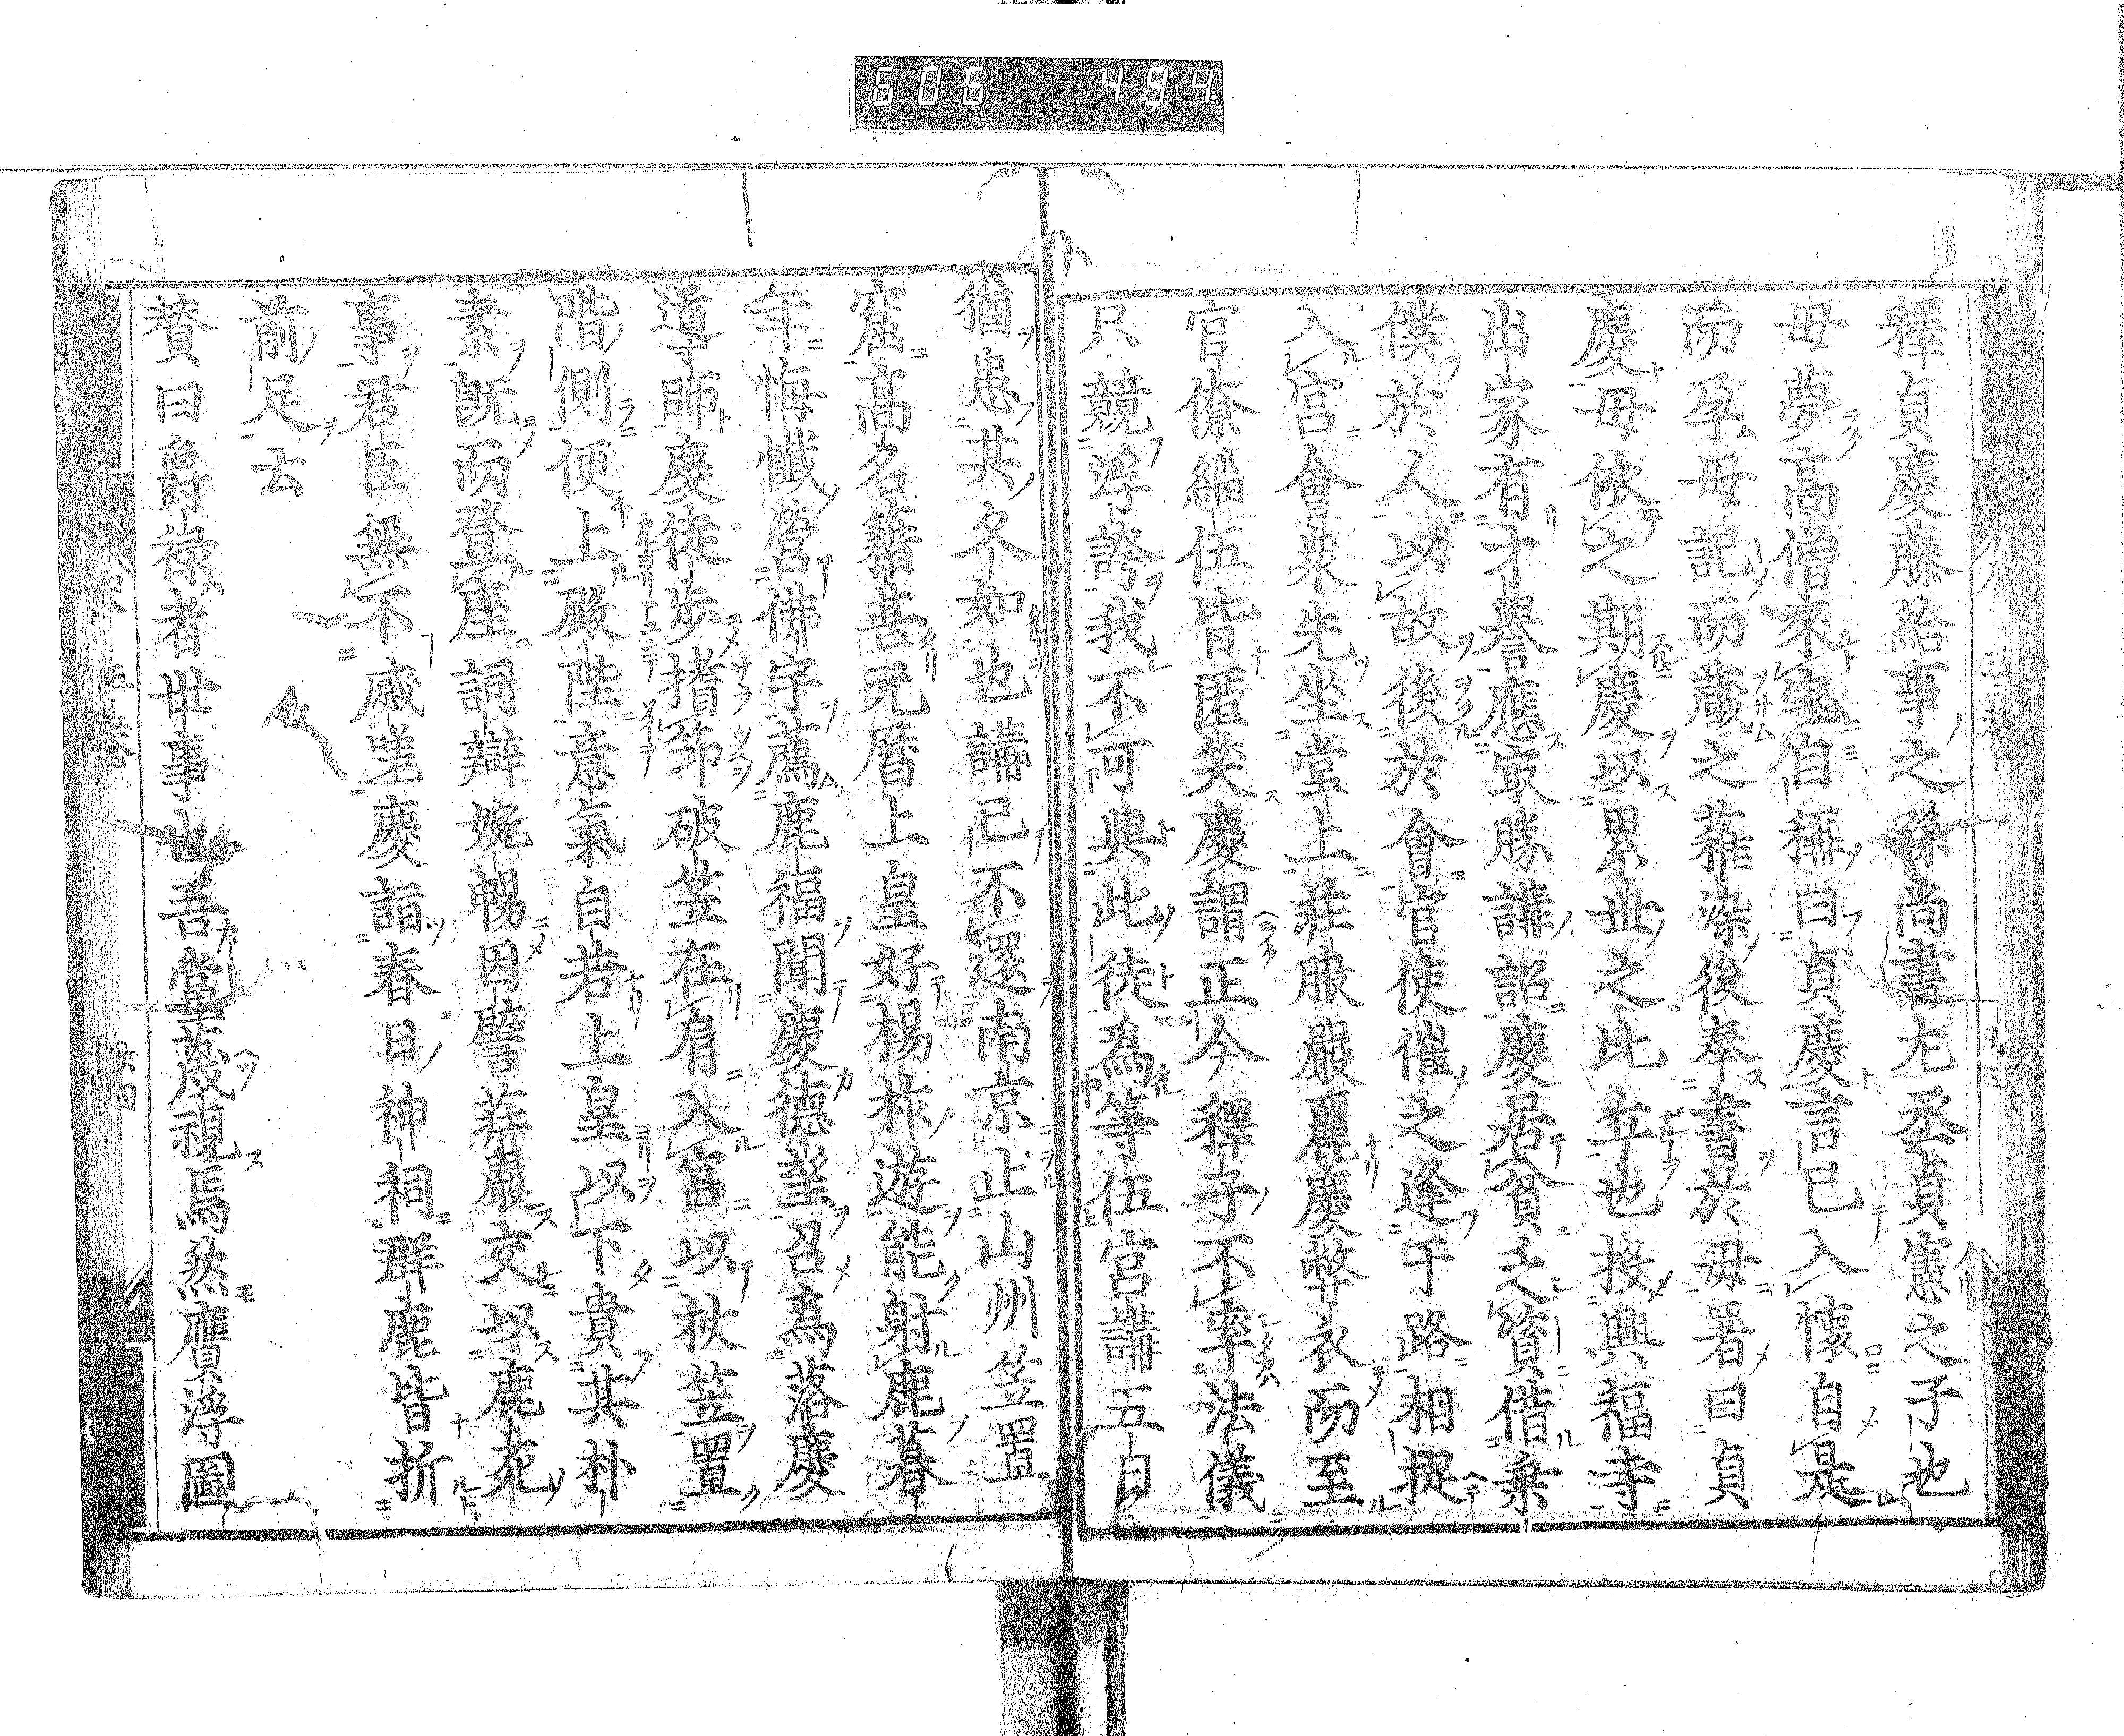 606 494
釋貞慶藤給事之孫尚書尢丞貞憲之子也
母夢高僧來室自稱曰貞慶言已入懷自是
而孕母記而藏之薙染後奉書於母署曰貞
慶母依之期慶以累世之比丘也投興福寺
出家有才譽應㝡勝講詔慶居貧乏資借乘
僕於人以故後於會官使催之逢于路相捉
入宮會衆先坐堂上莊服嚴麗慶弊衣而至
官僚緇伍皆匿笑慶謂正今釋子不率法儀
只競浮誇我不可與此徒爲等伍宮講五日
猶患其久如也講已不還南京止山州笠置
窟高名籍甚元曆上皇好楊柞遊能射鹿暮
年悔懺營佛宇薦鹿福聞慶德望召爲落慶
導師慶徒步搘筇破笠在肩入宮以杖笠置
階側便上殿陛意氣自若上皇以下貴其朴
素既而登座詞辯婉暢因譬莊嚴交以鹿苑
事君臣無不感嗟慶詣春日神祠群鹿皆折
前足去
賛曰爵祿者世事也吾當蔑視焉然膺浮圖